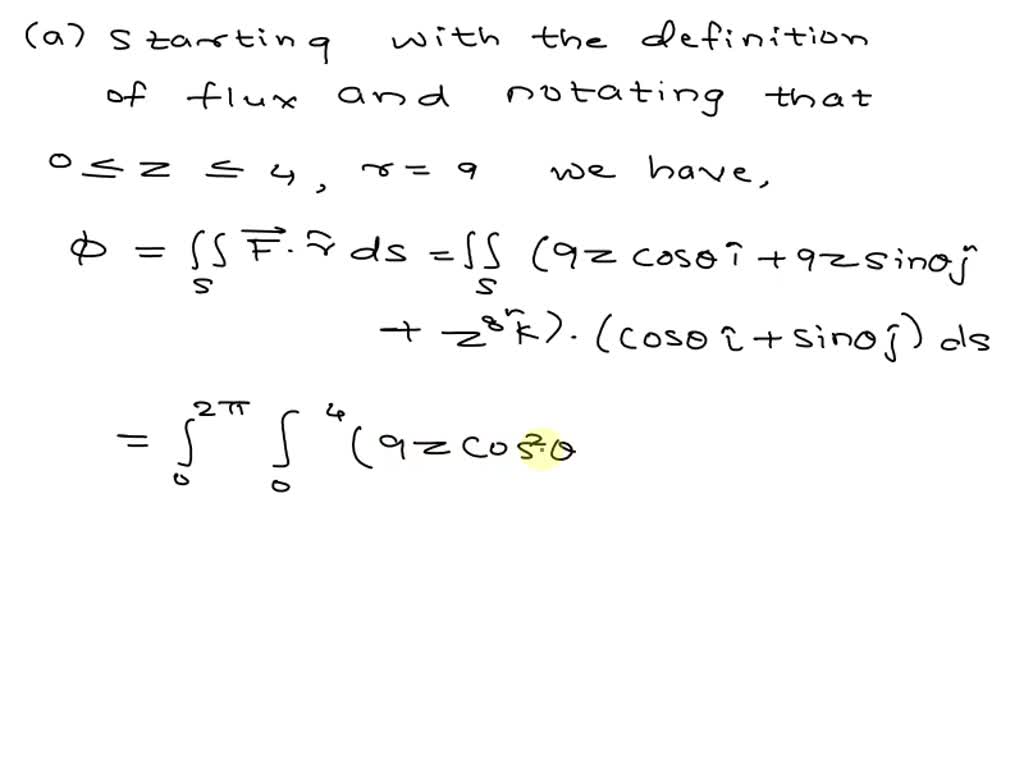 (a) Starting with the definition
of flux and notating that
0 ≤ z ≤ 4, r = 9 we have,
Φ = ∬_S F⃗ · r̂ ds = ∬_S (9z cosθ î + 9z sinθ ĵ
+ z⁸ k̂) · (cosθ î + sinθ ĵ) ds
= ∫₀^2π ∫₀^4 (9z cos²θ